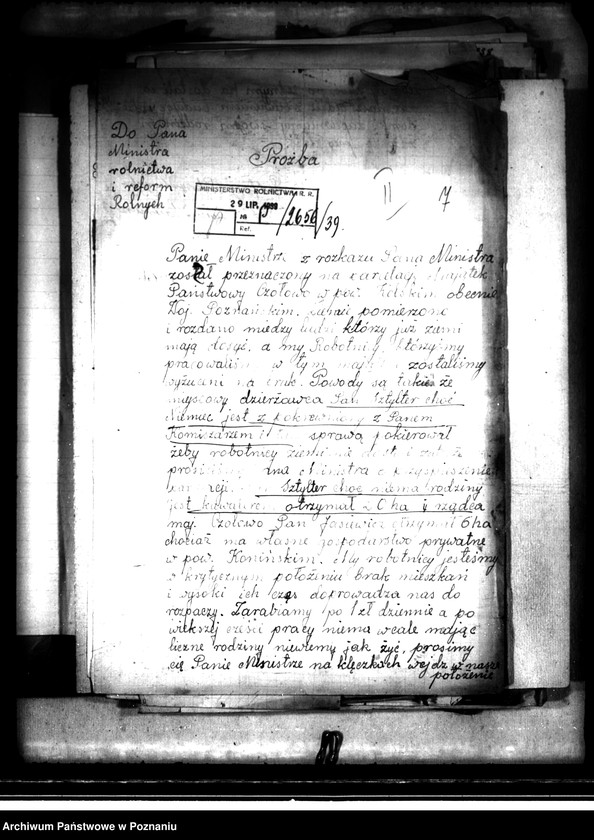 Do Pana
Ministra
rolnictwa
i reform
Rolnych
Prośba
MINISTERSTWO ROLNICTWA i R. R.
29 LIP. 1939
№
Ref.
/2656/39.
II/ 7
Panie Ministrze z rozkazu Pana Ministra
został przeznaczony na parcelację Majątek
Państwowy Czołowo w pow. Kolskim obecnie
Woj. Poznańskim, pomierzono
i rozdano miedzy ludzi którzy już sami
mają dosyć, a my Robotnicy którzyśmy
pracowaliśmy w tym majątku zostaliśmy
wyżuceni na bruk. Powody są takie że
miejscowy dzierżawca Pan Sztylter choć
Niemiec jest z pokrewniony z Panem
Komisarzem sprawą pokierował
żeby robotnicy ziemi nie
prosiliśmy Pana Ministra o przyspieszenie
Sztylter choć niema rodziny
jest kawalerem otrzymał 20 ha i rządca
maj. Czołowo Pan Jasiewicz otrzymał 6 ha
chociaż ma własne gospodarstwo prywatne
w pow. Konińskim. My robotnicy jesteśmy
w krytycznym położeniu brak mieszkań
i wysoki ich cząs doprowadza nas do
rozpaczy. Zarabiamy po 1 zł dziennie a po
większej części pracy niema wcale mając
liczne rodziny niewiemy jak żyć, prosimy
cię Panie Ministrze na klęczkach wejdz w nasze
położenie
Archiwum Państwowe w Poznaniu